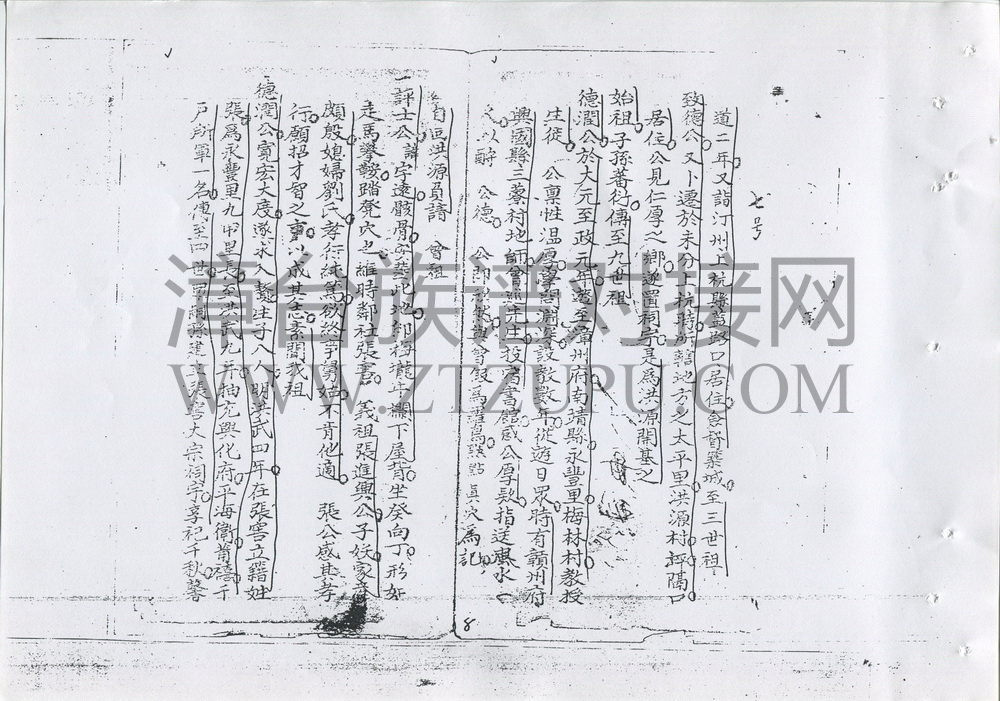 七号
道二年又詣汀州上杭縣藍路口居住倉督築城至三世祖
致德公又卜遷於未分上杭轄地方之太平里洪源村坪隔口
居住公見仁厚之鄉遂置祠宇是為洪源開基之
始祖子孫蕃衍傳至九世祖
德潤公於大元至政元年遷至漳州府南靖縣永豐里梅林村教授
生徒 公稟性溫厚學問淵深設教數年從遊日眾時有贛州府
興國縣三寮村地師曾巡先生投宿書館感公厚款指送風水一
之以酬 公德 公即 為 點真穴為記
自回洪源負請 曾祖
評士公諱 字遠骸骨 葬 地 下屋背坐癸向丁形如
走馬攀鞍踏凳穴 維時鄰社張 義祖張進興公子妖家
頗殷媳婦劉氏孝行純篤欲終 不肯他適 張公感其孝
行願招才智之 以成其志素聞我祖
德潤公寬宏大度遂求入 生子八人明洪武四年在張窖立籍姓
張為永豐里九甲里長至洪武九年抽充興化府平海衛莆禧千
戶所軍一名傳至四世 建立張窖大宗祠宇享祀千秋馨
8
漳台族谱对接网
WWW.ZTZUPU.COM